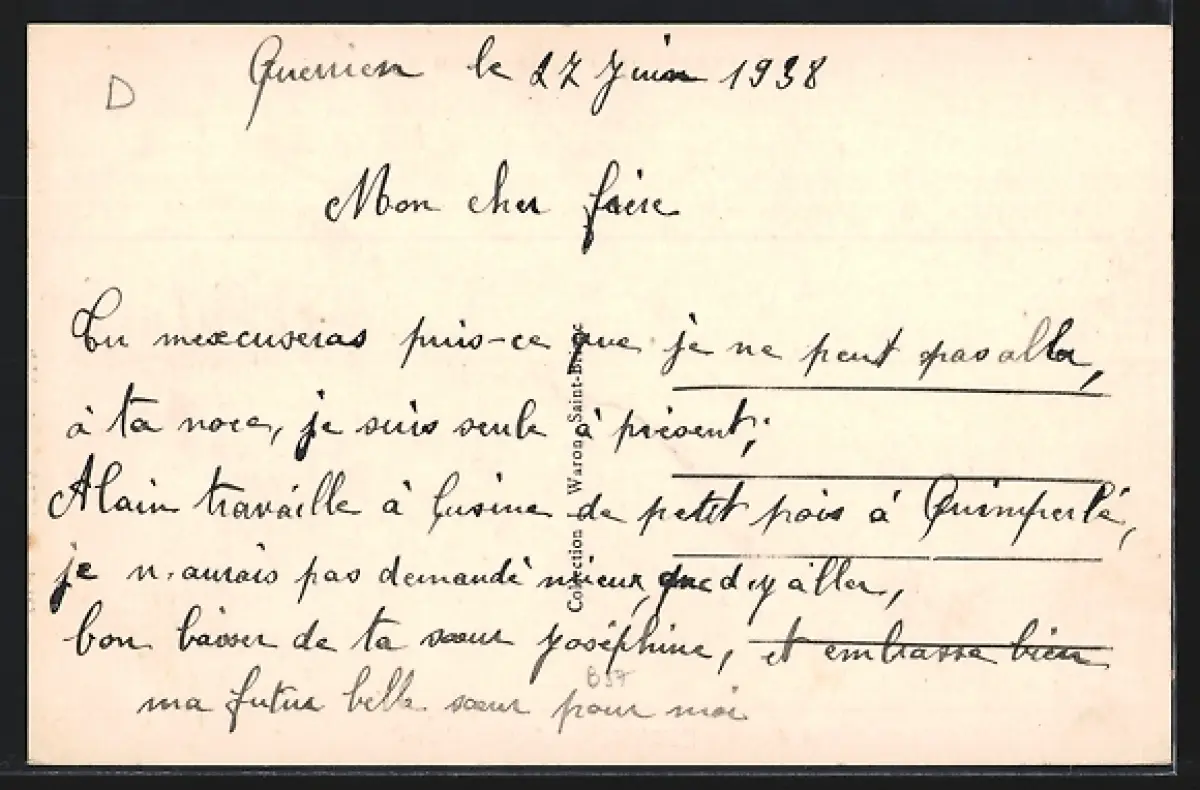 D
Querrien le 27 Juin 1938
Mon cher frère
Tu mexcuseras puis-ce que je ne peut pas aller,
à ta noce, je suis seule à présent,
Alain travaille à lusine de petit pois à Quimperlé,
je n'aurais pas demandé mieux, que d'y aller,
bon baiser de ta sœur Joséphine, et embrasse bien
ma futur belle sœur pour moi
B37
Collection Waron, Saint-Brieuc